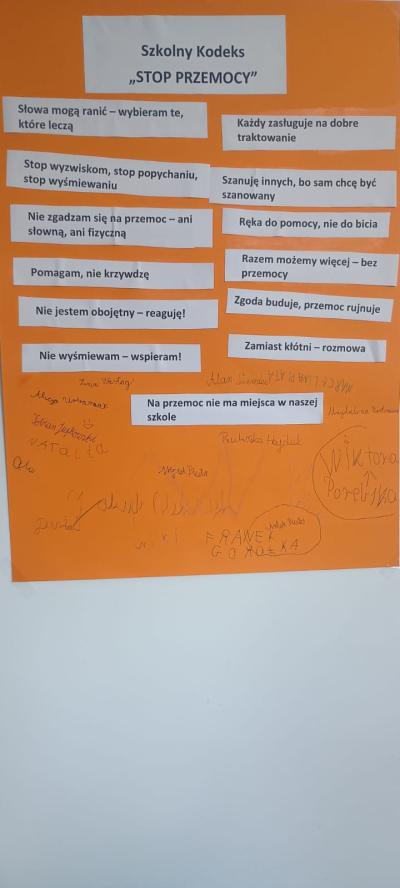 Szkolny Kodeks
„STOP PRZEMOCY”
Słowa mogą ranić – wybieram te,
które leczą
Każdy zasługuje na dobre
traktowanie
Stop wyzwiskom, stop popychaniu,
stop wyśmiewaniu
Szanuję innych, bo sam chcę być
szanowany
Nie zgadzam się na przemoc – ani
słowną, ani fizyczną
Ręka do pomocy, nie do bicia
Pomagam, nie krzywdzę
Razem możemy więcej – bez
przemocy
Nie jestem obojętny – reaguję!
Zgoda buduje, przemoc rujnuje
Nie wyśmiewam – wspieram!
Zamiast kłótni – rozmowa
Na przemoc nie ma miejsca w naszej
szkole
Alan
Magdalena
NATALIA
Wiktoria
FRANEK